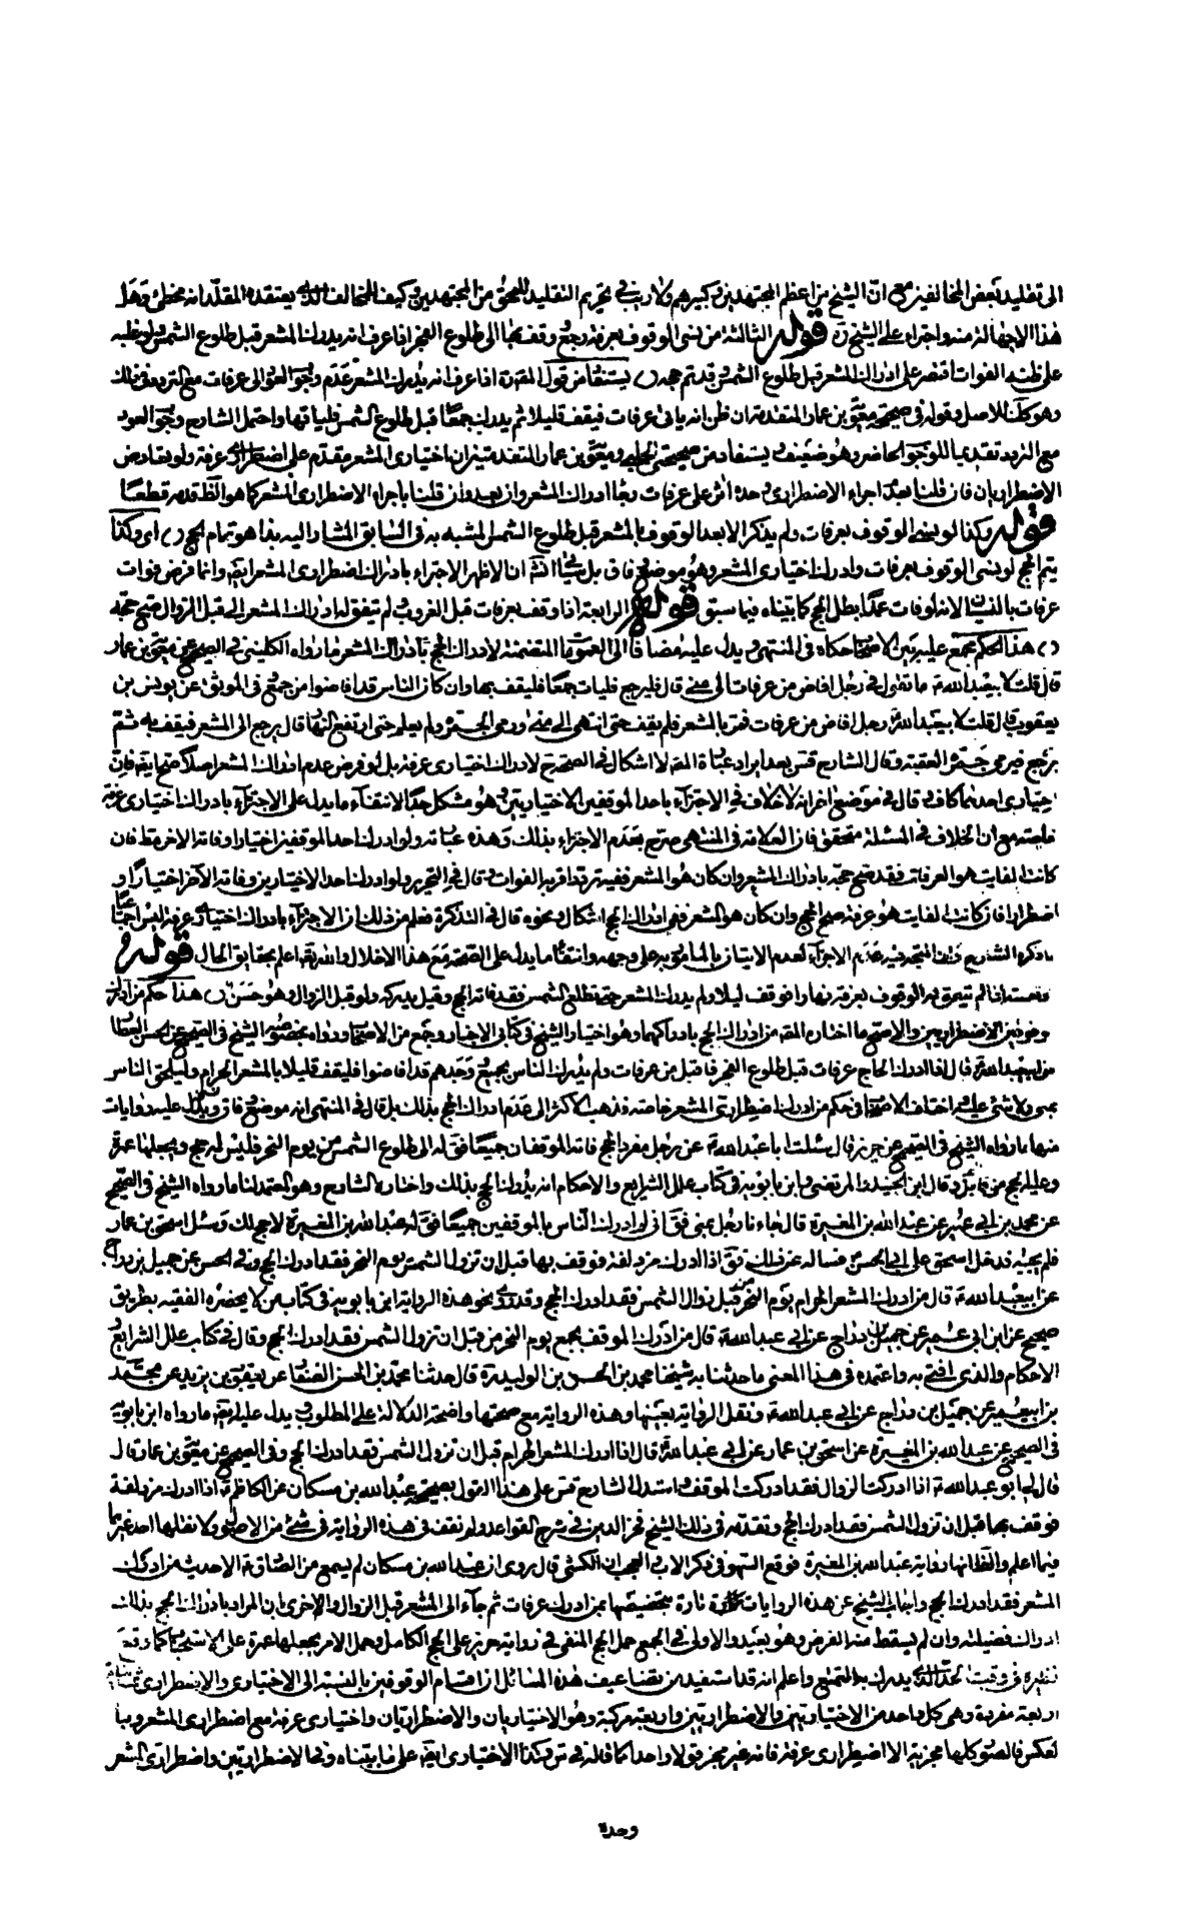 الى تقليد بعض المخالفين مع انّ الشيخ من اعظم المجتهدين وكبيرهم ولا ريب في تحريم التقليد للمحق من المجتهدين وكيف للمخالف الذى يعتقده المقلّد انه مخطئ وهل
هذا الا جهالة منه واجتراء على الشيخ ره قوله الثالثة من نسى الوقوف بعرفة رجع فوقف بها الى طلوع الفجر اذا عرف انه يدرك المشعر قبل طلوع الشمس ولو غلب
على ظنه الفوات اقتصر على ادراك المشعر قبل طلوع الشمس وقد تم حجه يستفاد من قول المصنف اذا عرف انه يدرك المشعر عدم وجوب العود الى عرفات مع التردد في ذلك
وهو كك للاصل وقوله في صحيحة معوية بن عمار المتقدمة ان ظن انه ياتى عرفات فيقف قليلا ثم يدرك جمعًا قبل طلوع الشمس فلياتها واحتمل الشارح وجوب العود
مع التردد تقديما للوجوب الحاضر وهو ضعيف ويستفاد من صحيحتى الحلبى ومعوية بن عمار المتقدمتين ان اختيارى المشعر مقدم على اضطرارى عرفة ولو تعارض
الاضطراريان فان قلنا بعدم اجزاء الاضطرارى وحده اثر على عرفات رجاء ادراك المشعر وان بعد وان قلنا باجزاء الاضطرارى المشعر كما هو الظ قدمه قطعًا
قوله وكذا لو نسى الوقوف بعرفات ولم يذكر الا بعد الوقوف بالمشعر قبل طلوع الشمس المشبه به في السابق المشار اليه بذا هو تمام الحج اى وكذا
يتم الحج لو نسى الوقوف بعرفات وادرك اختيارى المشعر وهو موضع وفاق بل سياتى انشاء الله ان الاظهر الاجتزاء بادراك اضطرارى المشعر ايضا وانما فرض فوات
عرفات بالنسيان لانه لو فات عمدًا بطل الحج كما بيناه فيما سبق قوله الرابعة اذا وقف بعرفات قبل الغروب ولم يتفق له ادراك المشعر الى قبل الزوال صح حجه
هذا الحكم مجمع عليه بين الاصحاب حكاه في المنتهى ويدل عليه مضافا الى العمومات المتضمنة لادراك الحج بادراك المشعر ما رواه الكلينى في الصحيح عن معوية بن عمار
قال قلت لابيعبد الله ع ما تقول في رجل افاض من عرفات الى منى قال فليرجع فليات جمعًا فليقف بها وان كان الناس قد افاضوا من جمع وفى الموثق عن يونس بن
يعقوب قال قلت لابيعبد الله ع رجل افاض من عرفات فمر بالمشعر فلم يقف حتى انتهى الى منى ورمى الجمرة ولم يعلم حتى ارتفع النهار قال يرجع الى المشعر فيقف به ثم
يرجع فيرمى جمرة العقبة وقال الشارح قدس بعد ايراد عبارة المصنف لا اشكال في الصحة ح لادراك اختيارى عرفة بل لو فرض عدم ادراك المشعر اصلا صح ايضا فان
اختيارى احدهما كاف وقال في موضع اخر انه لا خلاف في الاجتزاء باحد الموقفين الاختياريين وهو مشكل جدًا لانتفاء ما يدل على الاجتزاء بادراك اختيارى عرفة
خاصة مع ان الخلاف في المسئلة متحقق فان العلامة في المنتهى صرح بعدم الاجزاء بذلك وهذه عبارته ولو ادرك احد الموقفين اختيارا وفاته الاخر مط فان
كانت الفايت هو العرفات فقد صح حجه بادراك المشعر وان كان هو المشعر ففيه تردد اقربه الفوات وقال في التحرير ولو ادرك احد الاختياريين وفاته الآخر اختيارًا و
اضطرارا فان كانت الفايت هو عرفة صح الحج وان كان هو المشعر ففى ادراك الحج اشكال ونحوه قال في التذكرة فعلم من ذلك ان الاجتزاء بادراك اختيارى عرفة ليس اجماعيا
ما ذكره الشارح فان المتجه فيه عدم الاجزاء لعدم الاتيان بالمامور به على وجهه وانتفاء ما يدل على الصحة مع هذا الاخلال والله تعالى اعلم بحقايق الحال قوله
خامسة اذا لم يتفق له الوقوف بعرفة نهارا فوقف ليلا ولم يدرك المشعر حتى تطلع الشمس فقد فاته الحج وقيل يدركه ولو قبل الزوال وهو حسن هذا حكم من ادرك
وقوفين الاضطراريين والاصح ما اختاره المصنف من ادراك الحج بادراكهما وهو اختيار الشيخ في كتابى الاخبار وجمع من الاصحاب ورواه بخصوصه الشيخ في الصحيح عن الحسن العطار
عن ابيعبد الله ع قال اذا ادرك الحاج عرفات قبل طلوع الفجر فاقبل من عرفات ولم يدرك الناس بجمع ووجدهم قد افاضوا فليقف قليلا بالمشعر الحرام وليلحق الناس
بمنى ولا شئ عليه اختلف الاصحاب في حكم من ادرك اضطرارى المشعر خاصة فذهب الاكثر الى عدم ادراك الحج بذلك بل قال في المنتهى انه موضع وفاق ويدل عليه روايات
منها ما رواه الشيخ في الصحيح عن حريز قال سئلت ابا عبد الله ع عن رجل مفرد للحج فاته الموقفان جميعًا فق له الى طلوع الشمس من يوم النحر فليس له حج ويجعلها عمرة
وعليه الحج من قابل وقال ابن الجنيد والمرتضى وابن بابويه في كتاب علل الشرايع والاحكام انه يدرك الحج بذلك واختاره الشارح وهو المعتمد لنا ما رواه الشيخ في الصحيح
عن محمد بن ابى عمير عن عبد الله بن المغيرة قال جاءنا رجل بمنى فق انى لم ادرك الناس بالموقفين جميعًا فق له عبد الله بن المغيرة لا حج لك وسئل اسحق بن عمار
فلم يجبه فدخل اسحق على ابى الحسن ع فساله عن ذلك فق اذا ادرك مزدلفة فوقف بها قبل ان تزول الشمس يوم النحر فقد ادرك الحج وفى الحسن عن جميل بن دراج
عن ابيعبد الله ع قال من ادرك المشعر الحرام يوم النحر من قبل زوال الشمس فقد ادرك الحج وقد روى نحو هذه الرواية ابن بابويه في كتاب من لا يحضره الفقيه بطريق
صحيح عن ابن ابى عمير عن جميل بن دراج عن ابى عبد الله ع قال من ادرك الموقف بجمع يوم النحر من قبل ان تزول الشمس فقد ادرك الحج وقال في كتاب علل الشرايع و
الاحكام والذى افتى به واعتمده في هذا المعنى ما حدثنا به شيخنا محمد بن الحسن بن الوليد ره قال حدثنا محمد بن الحسن الصفار عن يعقوب بن يزيد عن محمد
بن ابيعمير عن جميل بن دراج عن ابى عبد الله ع ونقل الرواية بعينها وهذه الرواية مع صحتها واضحة الدلالة على المطلوب ويدل عليه ايضا ما رواه ابن بابويه
في الصحيح عن عبد الله بن المغيرة عن اسحق بن عمار عن ابى عبد الله ع قال اذا ادرك المشعر الحرام قبل ان تزول الشمس فقد ادرك الحج وفى الصحيح عن معوية بن عمار قال
قال لى ابو عبد الله ع اذا ادركت الزوال فقد ادركت الموقف واستدل الشارح قدس على هذا القول بصحيحة عبد الله بن مسكان عن الكاظم ع اذا ادرك مزدلفة
فوقف بها قبل ان تزول الشمس فقد ادرك الحج وتقدمه في ذلك الشيخ فخر الدين في شرح القواعد ولم نقف في هذه الرواية في شئ من الاصول ولا نقلها احد غيرهما
فيما اعلم والظ انها رواية عبد الله بن المغيرة فوقع السهو في ذكر الاب والعجب ان الكشى قال روى ان عبد الله بن مسكان لم يسمع من الصادق ع الا حديث من ادرك
المشعر فقد ادرك الحج واجاب الشيخ عن هذه الروايات تارة بتخصيصها بمن ادرك عرفات ثم جاء الى المشعر قبل الزوال والاخرى بان المراد بادراك الحج بذلك
ادراك فضيلته وان لم يسقط منه الفرض وهو بعيد والاولى في الجمع حمل الحج المنفى في رواية حريز على الحج الكامل وحمل الامر بجعلها عمرة على الاستحباب كما وقع
نظيره في وقيت الحد الذى يدرك به التمتع واعلم انه قد استفيد من تضاعيف هذه المسائل ان اقسام الوقوفين بالنسبة الى الاختيارى والاضطرارى ثمانية
اربعة مفردة وهى كل واحد من الاختياريتين والاضطراريتين واربعة مركبة وهو الاختياريان والاضطراريان واختيارى عرفة مع اضطرارى المشعر وبا
لعكس فالصور كلها مجزية الا اضطرارى عرفة فانه غير مجز قولا واحدا كما قاله في س وكذا الاختيارى ايضا على ما بيناه وفى الاضطراريين واضطرارى المشعر
وحده